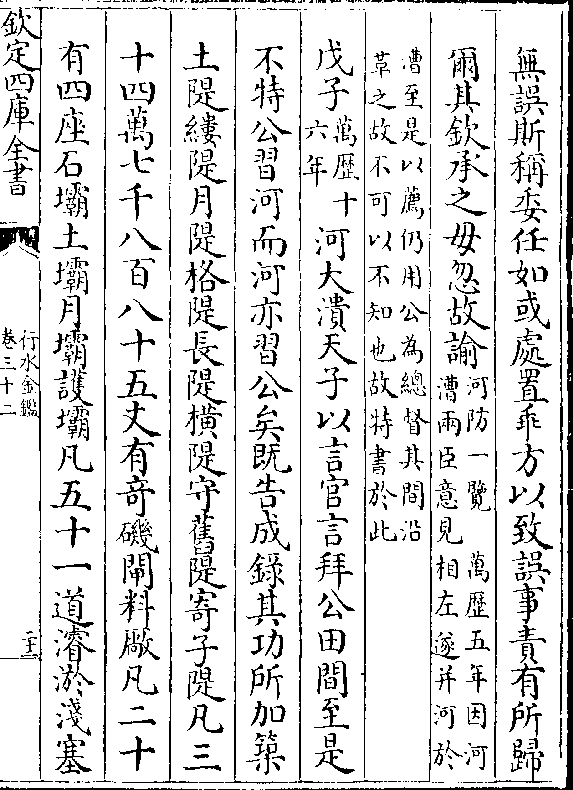 無誤斯稱委任如或處置乖方以致誤事責有所歸
爾其欽承之毋忽故諭河防一覽　萬歷五年因河
漕兩臣意見相左遂并河於
漕至是以薦仍用公為總督其間沿
革之故不可以不知也故特書於此
戊子萬歷十
六年
河大潰天子以言官言拜公田間至是
不特公習河而河亦習公矣既告成錄其功所加築
土隄縷隄月隄格隄長隄橫隄守舊隄寄子隄凡三
十四萬七千八百八十五丈有奇磯閘料廠凡二十
有四座石壩土壩月壩護壩凡五十一道濬淤淺塞
欽定四庫全書
行水金鑑
卷三十二
二十三